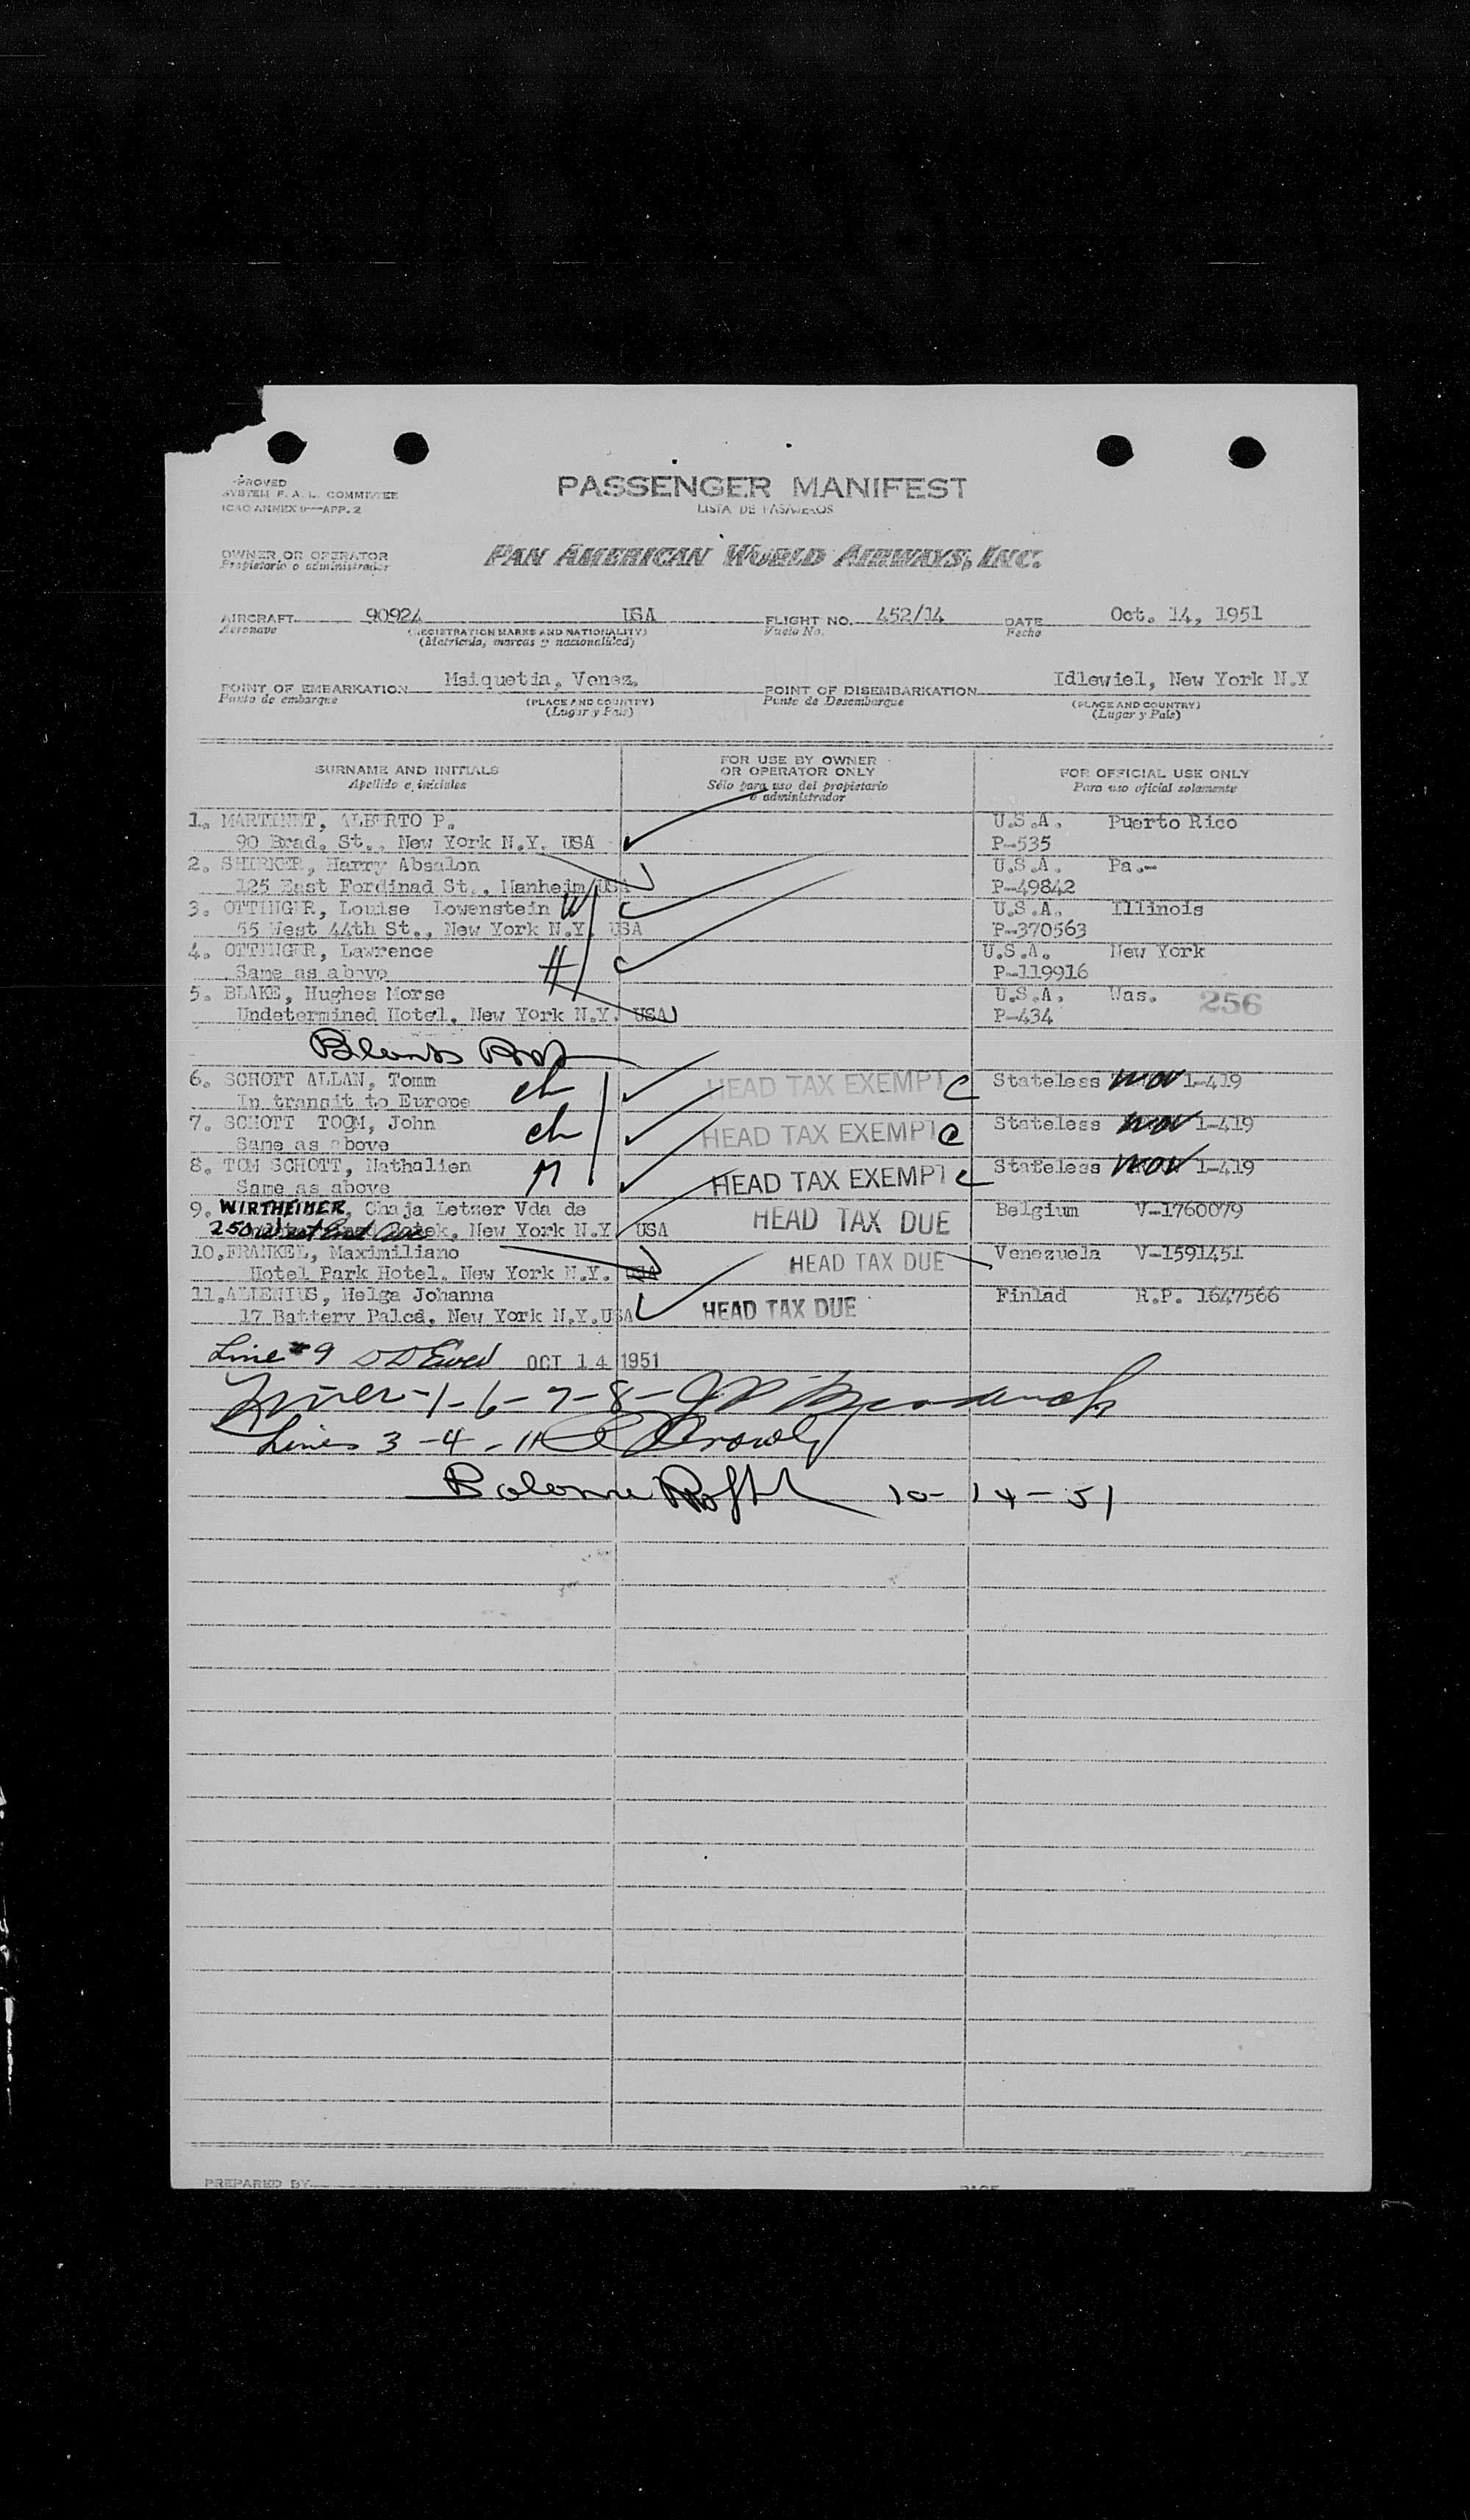 PROVED
SYSTEM F. A. L. COMMITTEE
ICAO ANNEX 9—APP. 2
PASSENGER MANIFEST
LISTA DE PASAJEROS
OWNER OR OPERATOR
Propietario o administrador
PAN AMERICAN WORLD AIRWAYS, INC.
AIRCRAFT 90924 USA FLIGHT NO. 452/14 DATE Oct. 14, 1951
Aeronave (REGISTRATION MARKS AND NATIONALITY) Vuelo No. Fecha
(Matricula, marcas y nacionalidad)
POINT OF EMBARKATION Msiquetia, Venez. POINT OF DISEMBARKATION Idlewiel, New York N.Y
Punto de embarque (PLACE AND COUNTRY) Punto de Desembarque (PLACE AND COUNTRY)
(Lugar y Pais) (Lugar y Pais)
SURNAME AND INITIALS FOR USE BY OWNER OR OPERATOR ONLY FOR OFFICIAL USE ONLY
Apellido e iniciales Sólo para uso del propietario o administrador Para uso oficial solamente
1. MARTINET, ALBERTO P. U.S.A. Puerto Rico
90 Brad. St., New York N.Y. USA P-535
2. SHIRKER, Harry Absalon U.S.A. Pa.-
125 East Ferdinad St., Manheim/USA P-49842
3. OTTINGER, Louise Lowenstein W U.S.A. Illinois
55 West 44th St., New York N.Y. USA P-370563
4. OTTINGER, Lawrence H U.S.A. New York
Same as above P-119916
5. BLAKE, Hughes Morse U.S.A. Was. 256
Undetermined Hotel, New York N.Y. USA P-434
6. SCHOTT ALLAN, Tomm ch HEAD TAX EXEMPT C Stateless 1-419
In transit to Europe
7. SCHOTT TOOM, John ch HEAD TAX EXEMPT C Stateless 1-419
Same as above
8. TOM SCHOTT, Nathalien M HEAD TAX EXEMPT C Stateless 1-419
Same as above
9. WIRTHEIMER, Chaja Letzer Vda de HEAD TAX DUE Belgium V-1760079
250 West End Ave New York N.Y. USA
10. FRANKEL, Maximiliano HEAD TAX DUE Venezuela V-1591451
Hotel Park Hotel, New York N.Y. USA
11. ALLENIUS, Helga Johanna HEAD TAX DUE Finlad R.P. 1647566
17 Battery Palcd, New York N.Y.USA
Line #9 OCT 14 1951
Lines -1-6-7-8-
Lines 3-4-11
10-14-51
PREPARED BY
PAGE